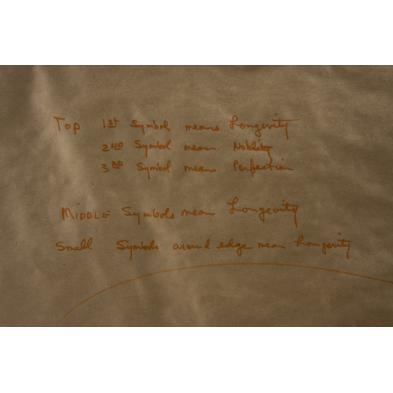 Top 1st Symbol means Longevity
2nd Symbol mean Nobility
3rd Symbol means Perfection
MIDDLE Symbols mean Longevity
Small Symbols around edge mean Longevity